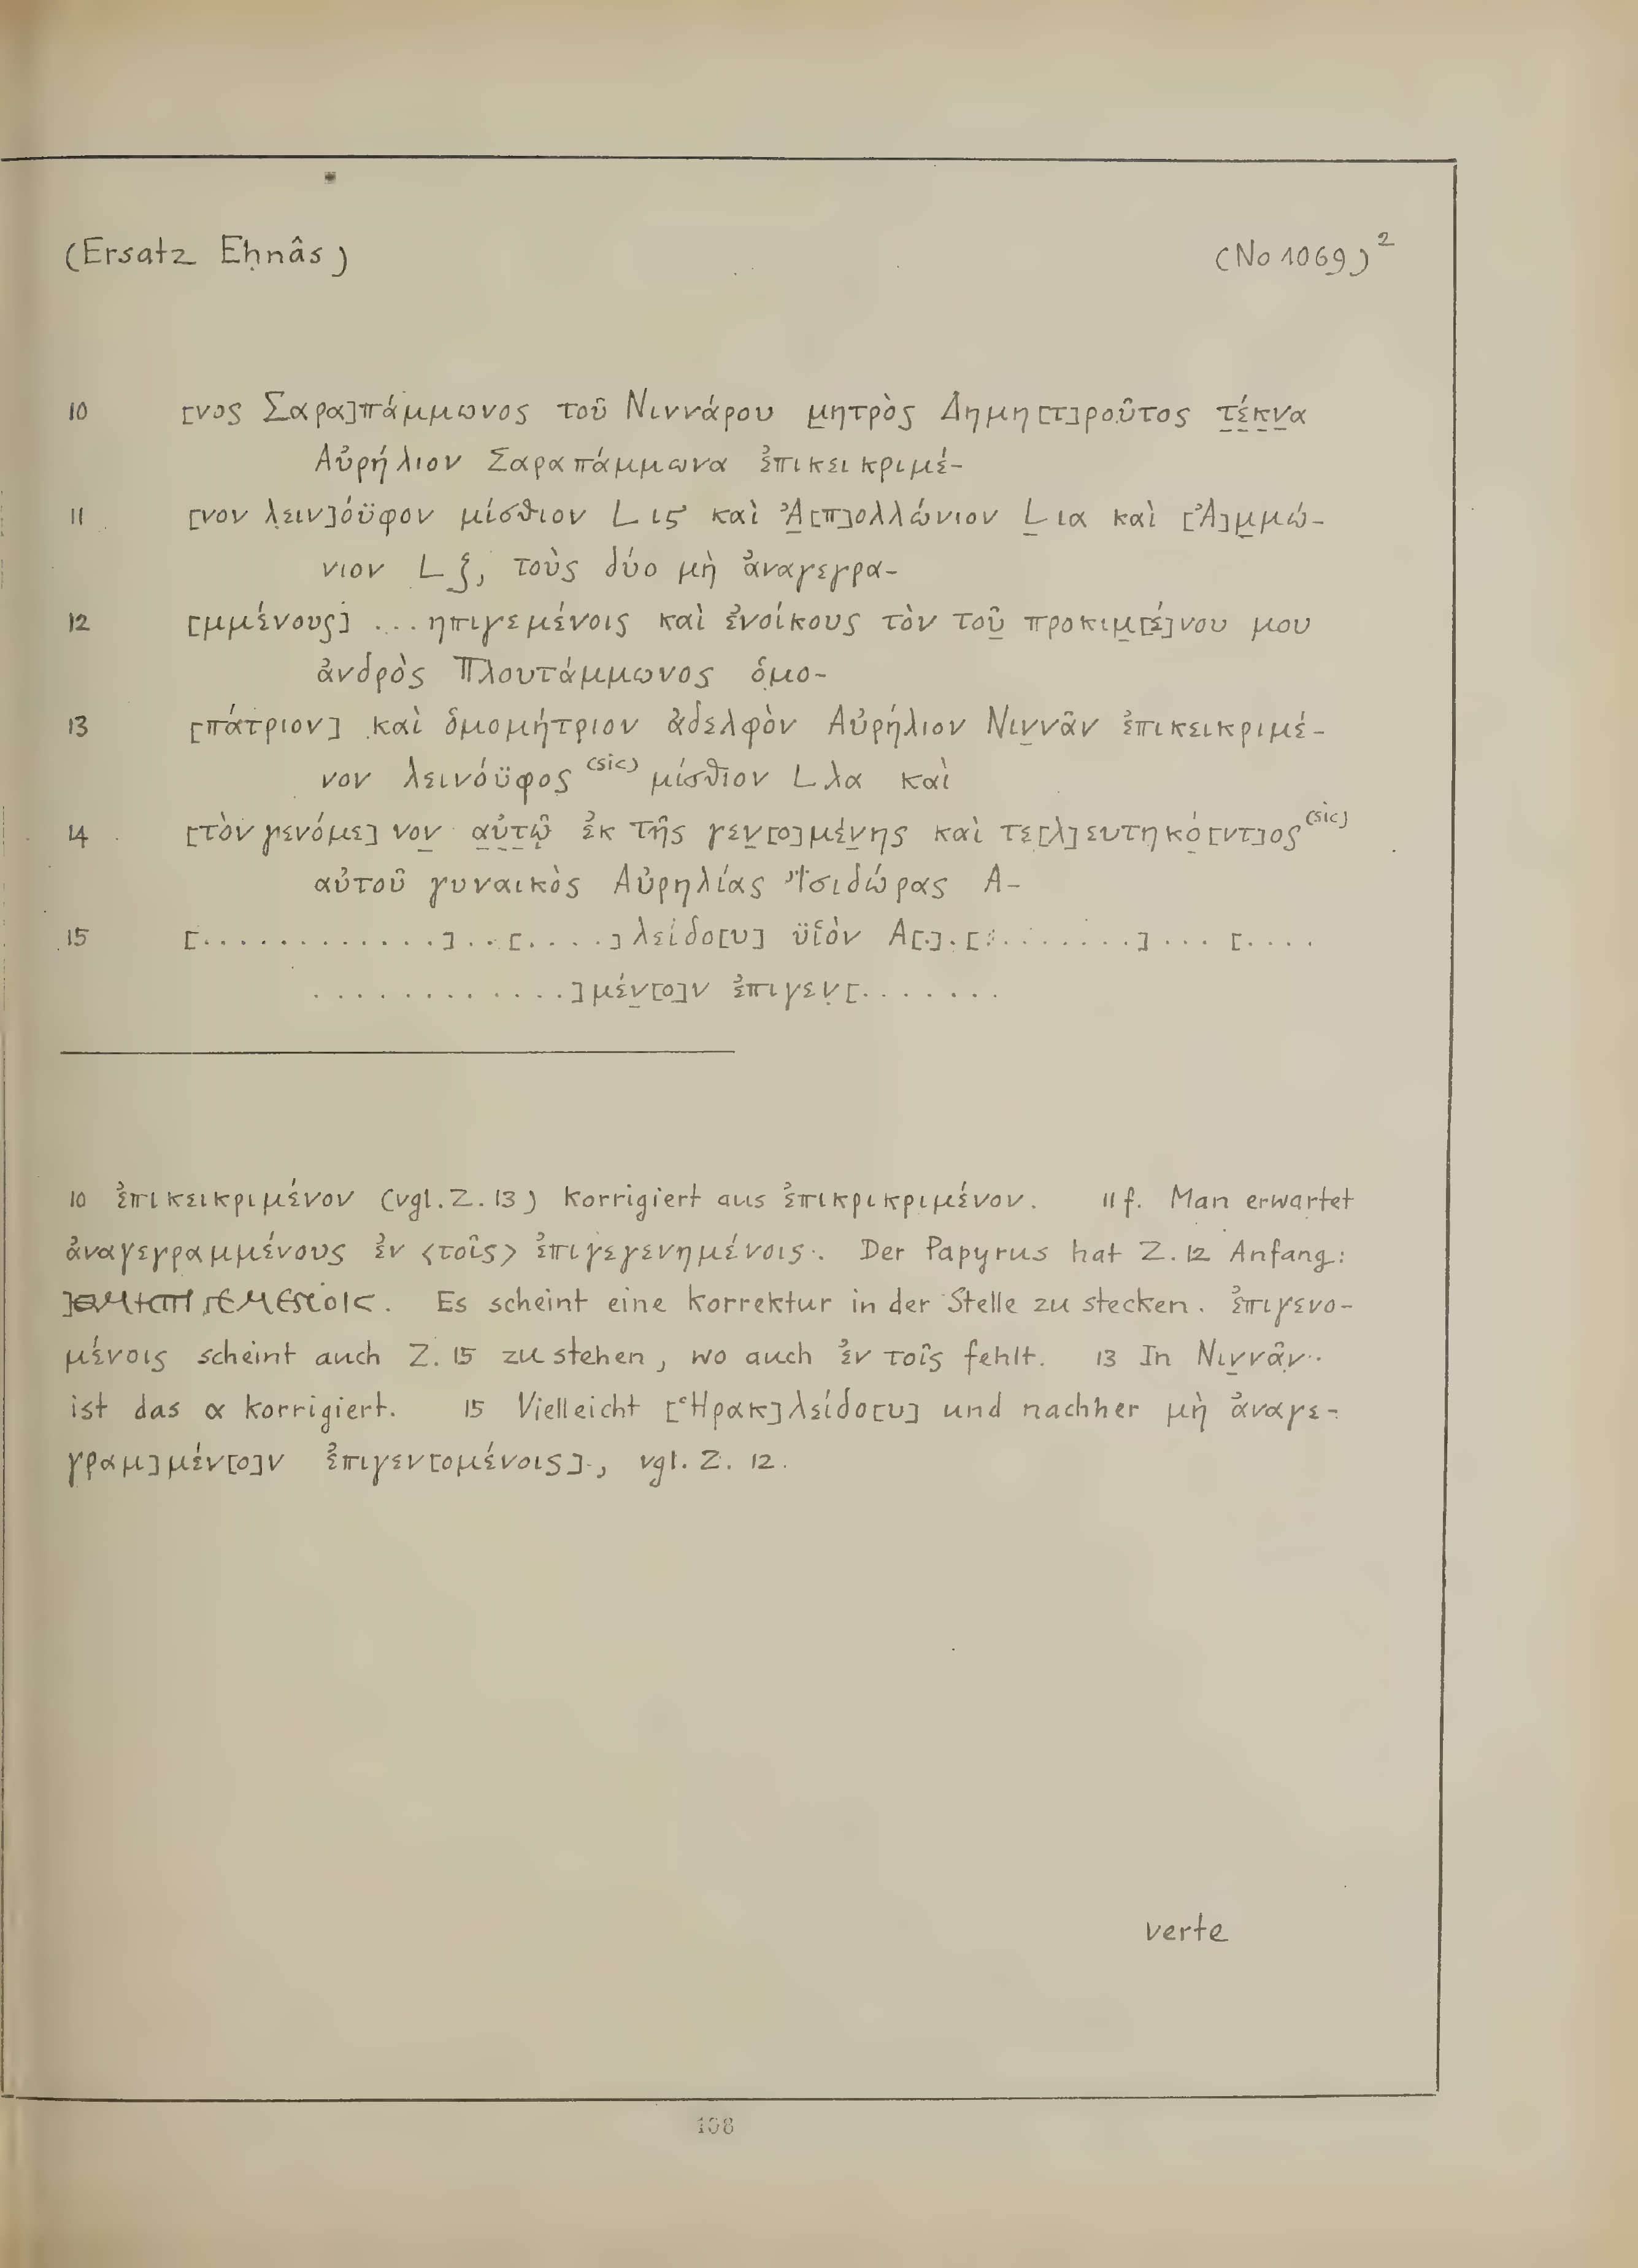 (Ersatz Eḥnâs) (No 1069)²
10 [νος Σαρα]πάμμωνος τοῦ Νιννάρου μ̲ητρὸς Δημη[τ]ροῦτος τ̲έ̲κ̲ν̲α
Αὐρήλιον Σαραπάμμωνα ἐπικεικριμέ-
11 [νον λειν]όϋφον μίσθιον L ιϛ καὶ Ἀ̲[π]ολλώνιον L̲ ια καὶ [Ἀ]μ̲μώ-
νιον L ζ, τοὺς δύο μὴ ἀναγεγρα-
12 [μμένους] ... ηπιγεμένοις καὶ ἐνοίκους τὸν τοῦ̲ προκιμ̲[έ]νου μου
ἀνδρὸς Πλουτάμμωνος ὁμο-
13 [πάτριον] καὶ ὁμομήτριον ἀδελφὸν Αὐρήλιον Νιν̲νᾶν ἐπικεικριμέ-
νον λεινόϋφος (sic) μίσθιον L λα καὶ
14 [τὸν γενόμε]νον̲ α̲ὐ̲τ̲ῷ ἐκ τῆς γεν̲[ο]μέν̲ης καὶ τε[λ]ευτηκό̲[ντ]ος (sic)
αὐτοῦ γυναικὸς Αὐρηλίας Ἰσιδώρας Α-
15 [.............]..[....]λείδο[υ] ϋἱὸν Α[.].[........]...[....
.............]μέν̲[ο]ν ἐπιγεν̣[.......
10 ἐπικεικριμένον (vgl. Z. 13) korrigiert aus ἐπικρικριμένον. 11 f. Man erwartet
ἀναγεγραμμένους ἐν <τοῖς> ἐπιγεγενημένοις. Der Papyrus hat Z. 12 Anfang:
Es scheint eine Korrektur in der Stelle zu stecken. ἐπιγενο-
μένοις scheint auch Z. 15 zu stehen, wo auch ἐν τοῖς fehlt. 13 In Νιν̲νᾶν
ist das α korrigiert. 15 Vielleicht [Ἡρακ]λείδο[υ] und nachher μὴ ἀναγε-
γραμ]μέν[ο]ν ἐπιγεν[ομένοις], vgl. Z. 12.
verte
108